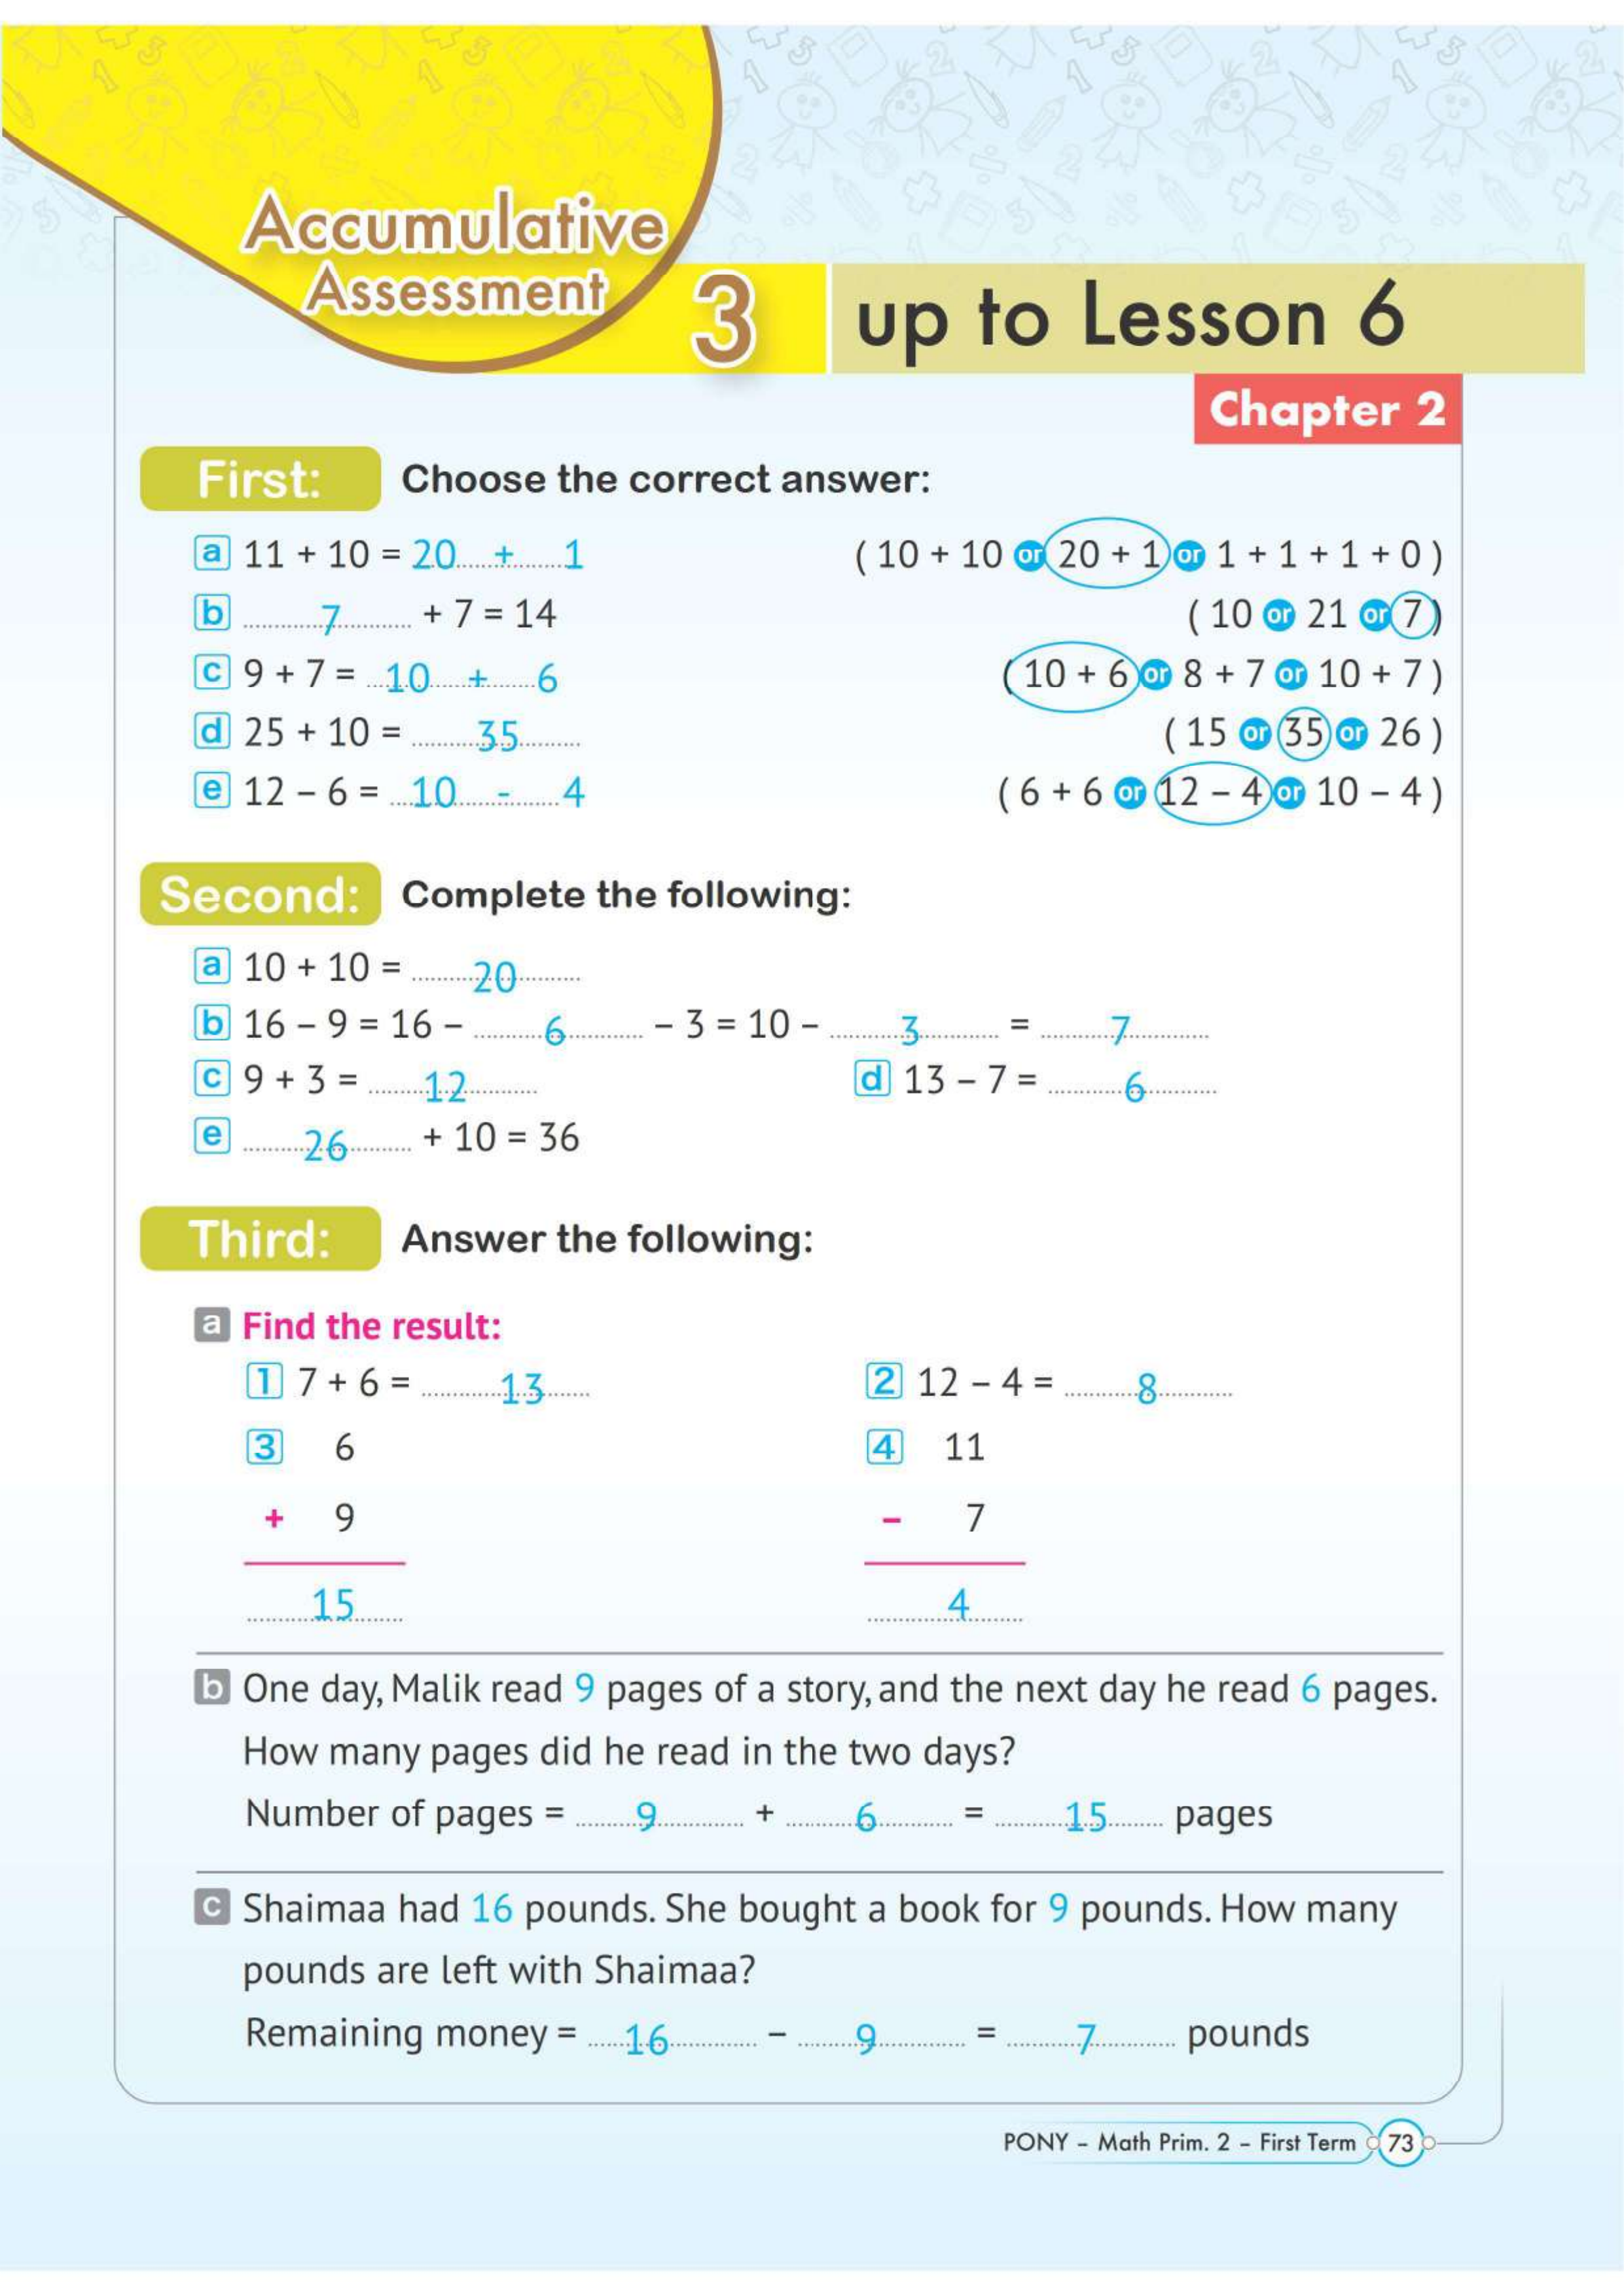 Accumulative
Assessment 3 up to Lesson 6
Chapter 2
First: Choose the correct answer:
a 11 + 10 = 20 + 1 ( 10 + 10 or 20 + 1 or 1 + 1 + 1 + 0 )
b 7 + 7 = 14 ( 10 or 21 or 7 )
c 9 + 7 = 10 + 6 ( 10 + 6 or 8 + 7 or 10 + 7 )
d 25 + 10 = 35 ( 15 or 35 or 26 )
e 12 – 6 = 10 - 4 ( 6 + 6 or 12 – 4 or 10 – 4 )
Second: Complete the following:
a 10 + 10 = 20
b 16 – 9 = 16 – 6 – 3 = 10 – 3 = 7
c 9 + 3 = 12 d 13 – 7 = 6
e 26 + 10 = 36
Third: Answer the following:
a Find the result:
1 7 + 6 = 13 2 12 – 4 = 8
3 6 4 11
+ 9 – 7
15 4
b One day, Malik read 9 pages of a story, and the next day he read 6 pages.
How many pages did he read in the two days?
Number of pages = 9 + 6 = 15 pages
c Shaimaa had 16 pounds. She bought a book for 9 pounds. How many
pounds are left with Shaimaa?
Remaining money = 16 – 9 = 7 pounds
PONY – Math Prim. 2 – First Term 73